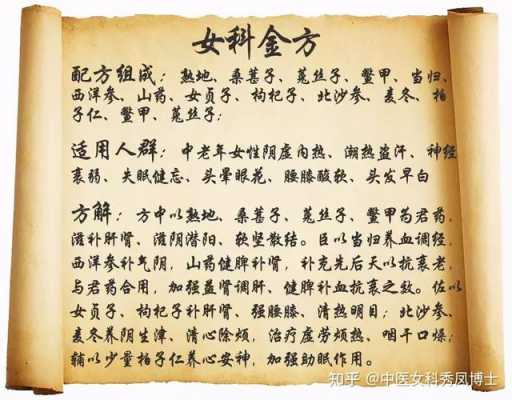 女科金方
配方组成：熟地、桑葚子、菟丝子、鳖甲、当归、
西洋参、山药、女贞子、枸杞子、北沙参、麦冬、柏
子仁、鳖甲、菟丝子；
适用人群：中老年女性阴虚内热、潮热盗汗、神经
衰弱、失眠健忘、头晕眼花、腰膝酸软、头发早白
方解：方中以熟地、桑葚子、菟丝子、鳖甲为君药，
滋补肝肾、滋阴潜阳、软坚散结。臣以当归养血调经，
西洋参补气阴，山药健脾补肾，补充先后天以抗衰老，
与君药合用，加强益肾调肝、健脾补血抗衰之效。佐以
女贞子、枸杞子补肝肾、强腰膝、清热明目；北沙参、
麦冬养阴生津、清心除烦，治疗虚劳烦热、咽干口燥；
辅以少量柏子仁养心安神，加强助眠作用。
知乎 @中医女科秀凤博士